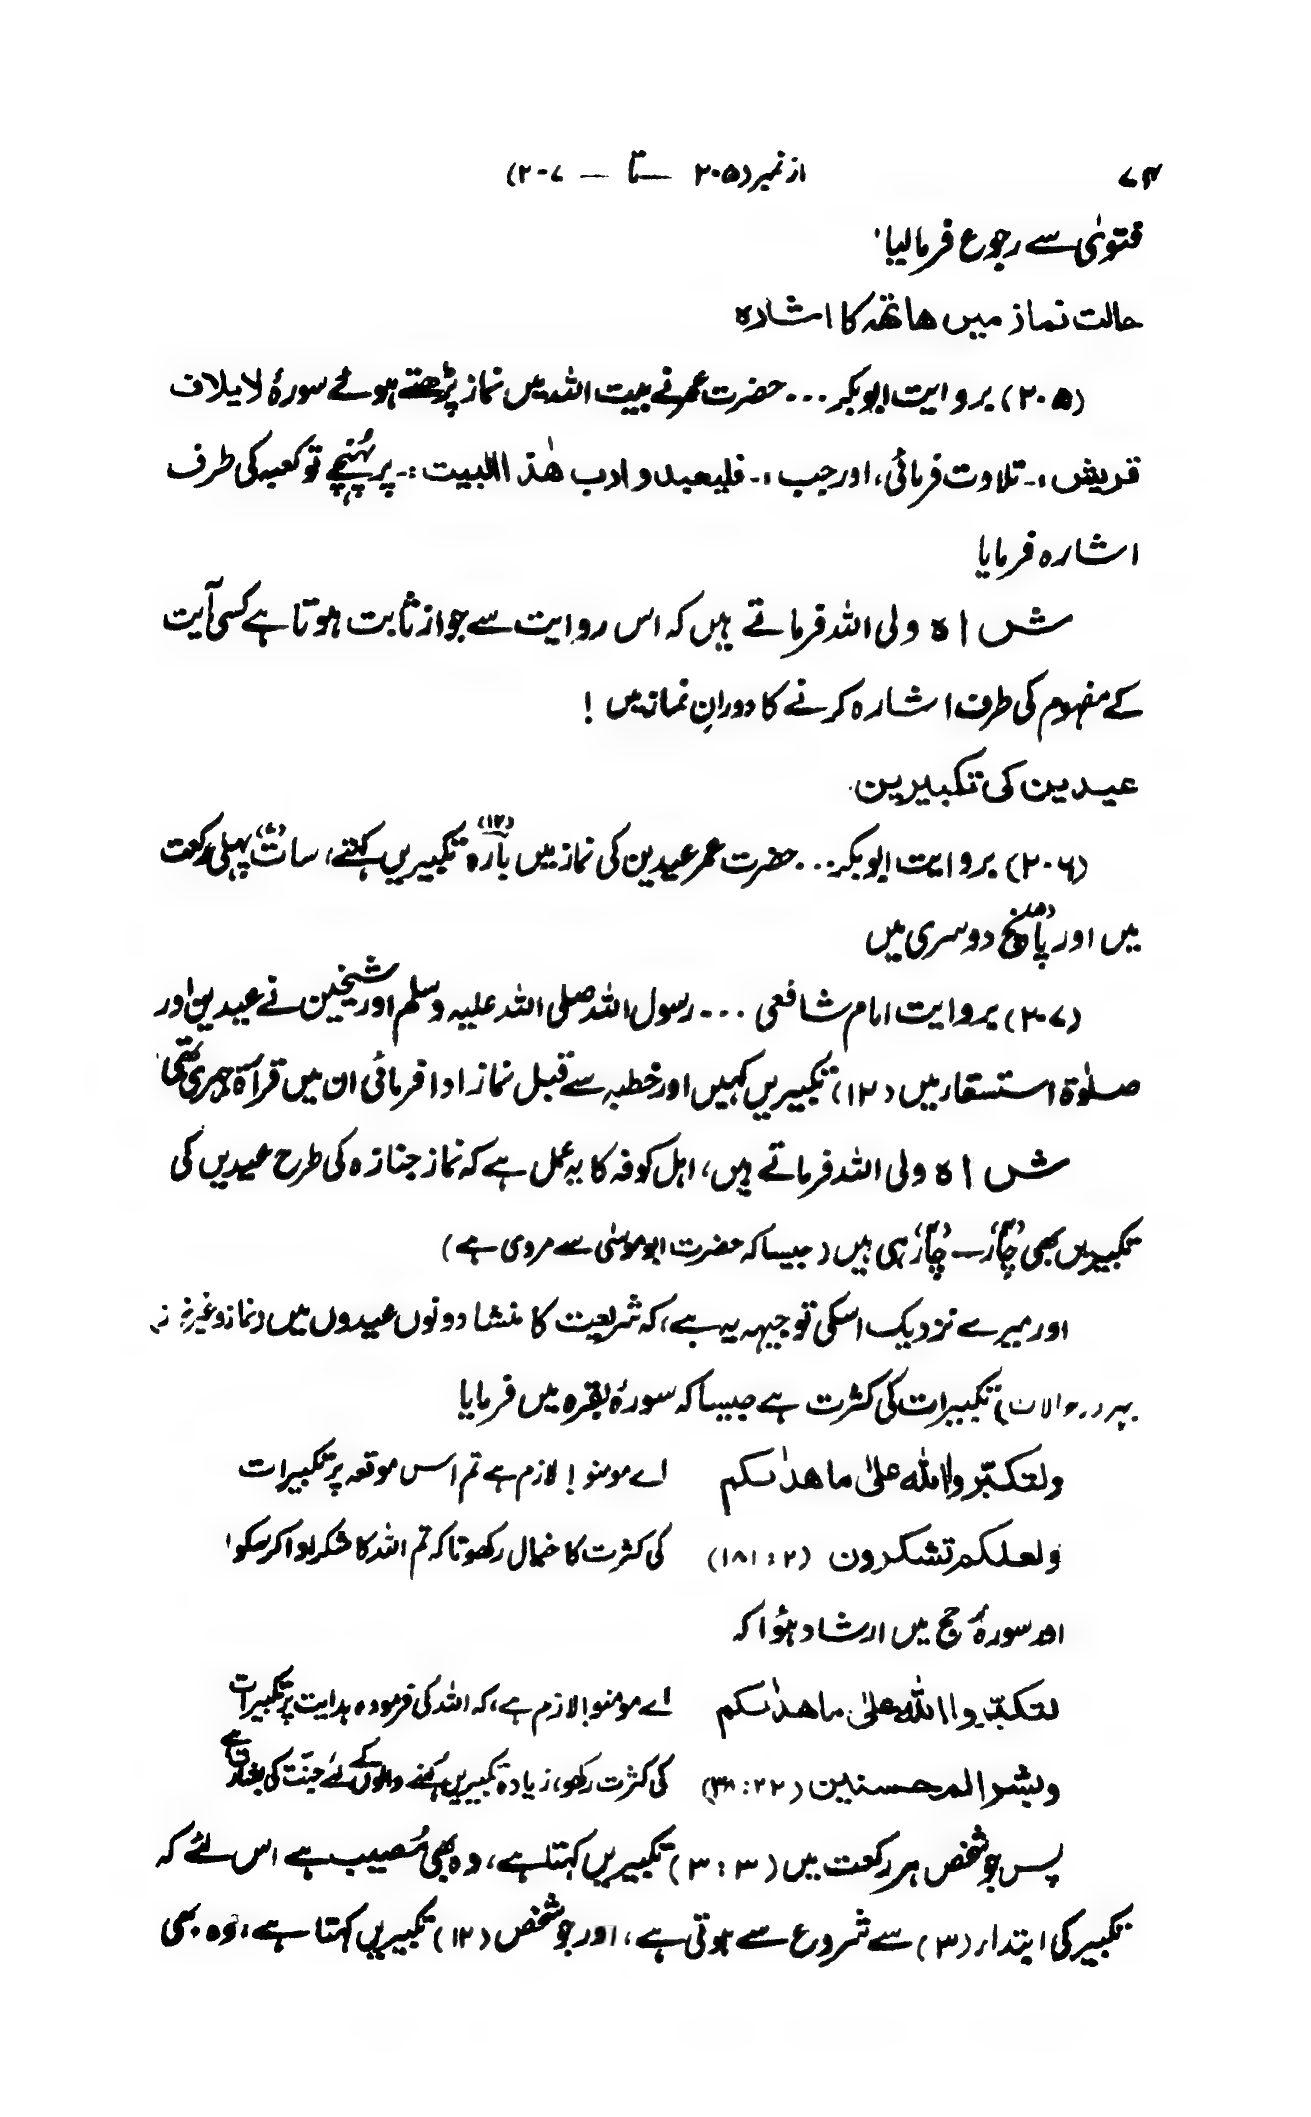 ۷۴ از نمبر (۲۰۵ — تا — ۲۰۷)
فتویٰ سے رجوع فرمالیا'
حالت نماز میں ھاتھ کا اشارہ
(۲۰۵) بروایت ابوبکر... حضرت عمر نے بیت اللہ میں نماز پڑھتے ہوئے سورۂ لایلاف
قریش :۔ تلاوت فرمائی، اور جب :۔ فلیعبدوا رب ھٰذ االبیت :۔ پر پہنچے تو کعبہ کی طرف
اشارہ فرمایا
شاہ ولی اللہ فرماتے ہیں کہ اس روایت سے جواز ثابت ہوتا ہے کسی آیت
کے مفہوم کی طرف اشارہ کرنے کا دورانِ نماز میں !
عیدین کی تکبیرین
(۲۰۶) بروایت ابوبکر... حضرت عمر عیدین کی نماز میں بارہ (۱۲) تکبیریں کہتے، سات (۷) پہلی رکعت
میں اور پانچ (۵) دوسری میں
(۲۰۷) بروایت امام شافعی ... رسول اللہ صلی اللہ علیہ وسلم اور شیخین نے عیدین اور
صلوٰۃ استسقاء میں (۱۲) تکبیریں کہیں اور خطبہ سے قبل نماز ادا فرمائی ان میں قرآۃ جہری تھی
شاہ ولی اللہ فرماتے ہیں، اہل کوفہ کا یہ عمل ہے کہ نماز جنازہ کی طرح عیدیں کی
تکبیریں بھی چار (۴) — چار (۴) ہی ہیں (جیسا کہ حضرت ابوموسٰی سے مروی ہے)
اور میرے نزدیک اسکی توجیہہ یہ ہے، کہ شریعت کا منشا دونوں عیدوں میں (نماز و غیر نماز
ہر دو حالات) تکبیرات کی کثرت ہے جیسا کہ سورۂ بقرہ میں فرمایا
ولتکبّروا اللہ علیٰ ما ھدٰىکم اے مومنو! لازم ہے تم اس موقعہ پر تکبیرات
ولعلکم تشکرون (۲ : ۱۸۱) کی کثرت کا خیال رکھو تاکہ تم اللہ کا شکر ادا کر سکو'
اور سورۂ حج میں ارشاد ہؤا کہ
لتکبّروا اللہ علیٰ ما ھدٰىکم اے مومنو! لازم ہے، کہ اللہ کی فرمودہ ہدایت پر تکبیرات
وبشر المحسنین (۲۲ : ۳۸) کی کثرت رکھو، زیادہ تکبیریں کہنے والوں کے لئے جنّت کی بشارت ہے
پس جو شخص ہر رکعت میں (۳ : ۳) تکبیریں کہتا ہے، وہ بھی مُصیب ہے اس لئے کہ
تکبیر کی ابتداء (۳) سے شروع سے ہوتی ہے، اور جو شخص (۱۲) تکبیریں کہتا ہے، وہ بھی